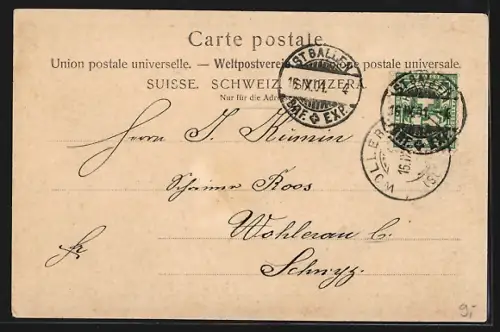 Carte postale.
Union postale universelle. — Weltpostverein postale universale.
SUISSE. SCHWEIZ. SVIZZERA.
Nur für die Adresse
ST. GALLEN
16.IX.01. 4
BRF. EXP.
ST. GALLEN
BRF. EXP.
WOLLER
16.IX
Herrn J. Kümin
Schreiner Roos
Wohlerau b.
Schwyz
9,-